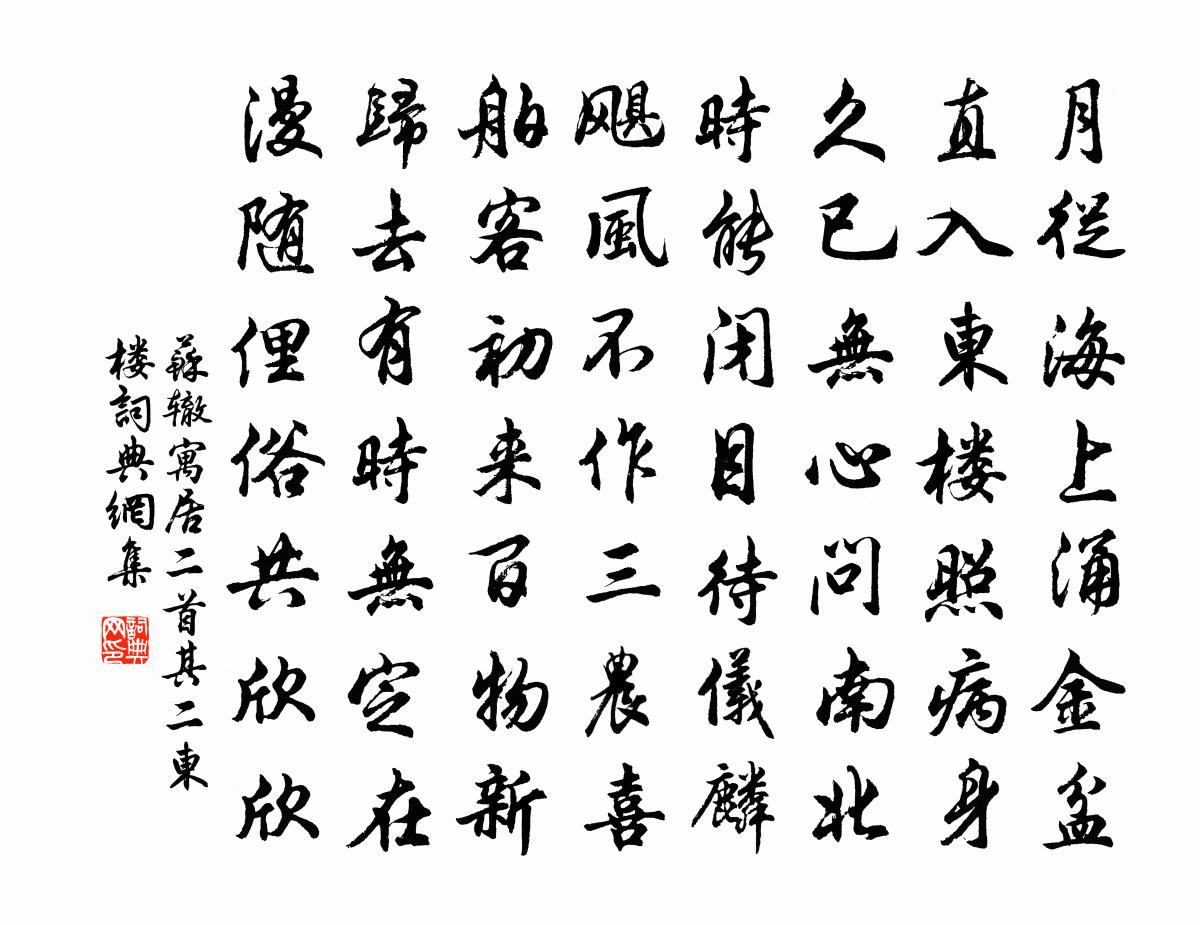 月從海上涌金盆
直入東楼照病身
久已無心問南北
時能闭目待儀麟
飓風不作三農喜
舶客初来百物新
歸去有時無定在
漫随俚俗共欣欣
蘇辙寓居二首其二東
楼詞典網集
詞典网印